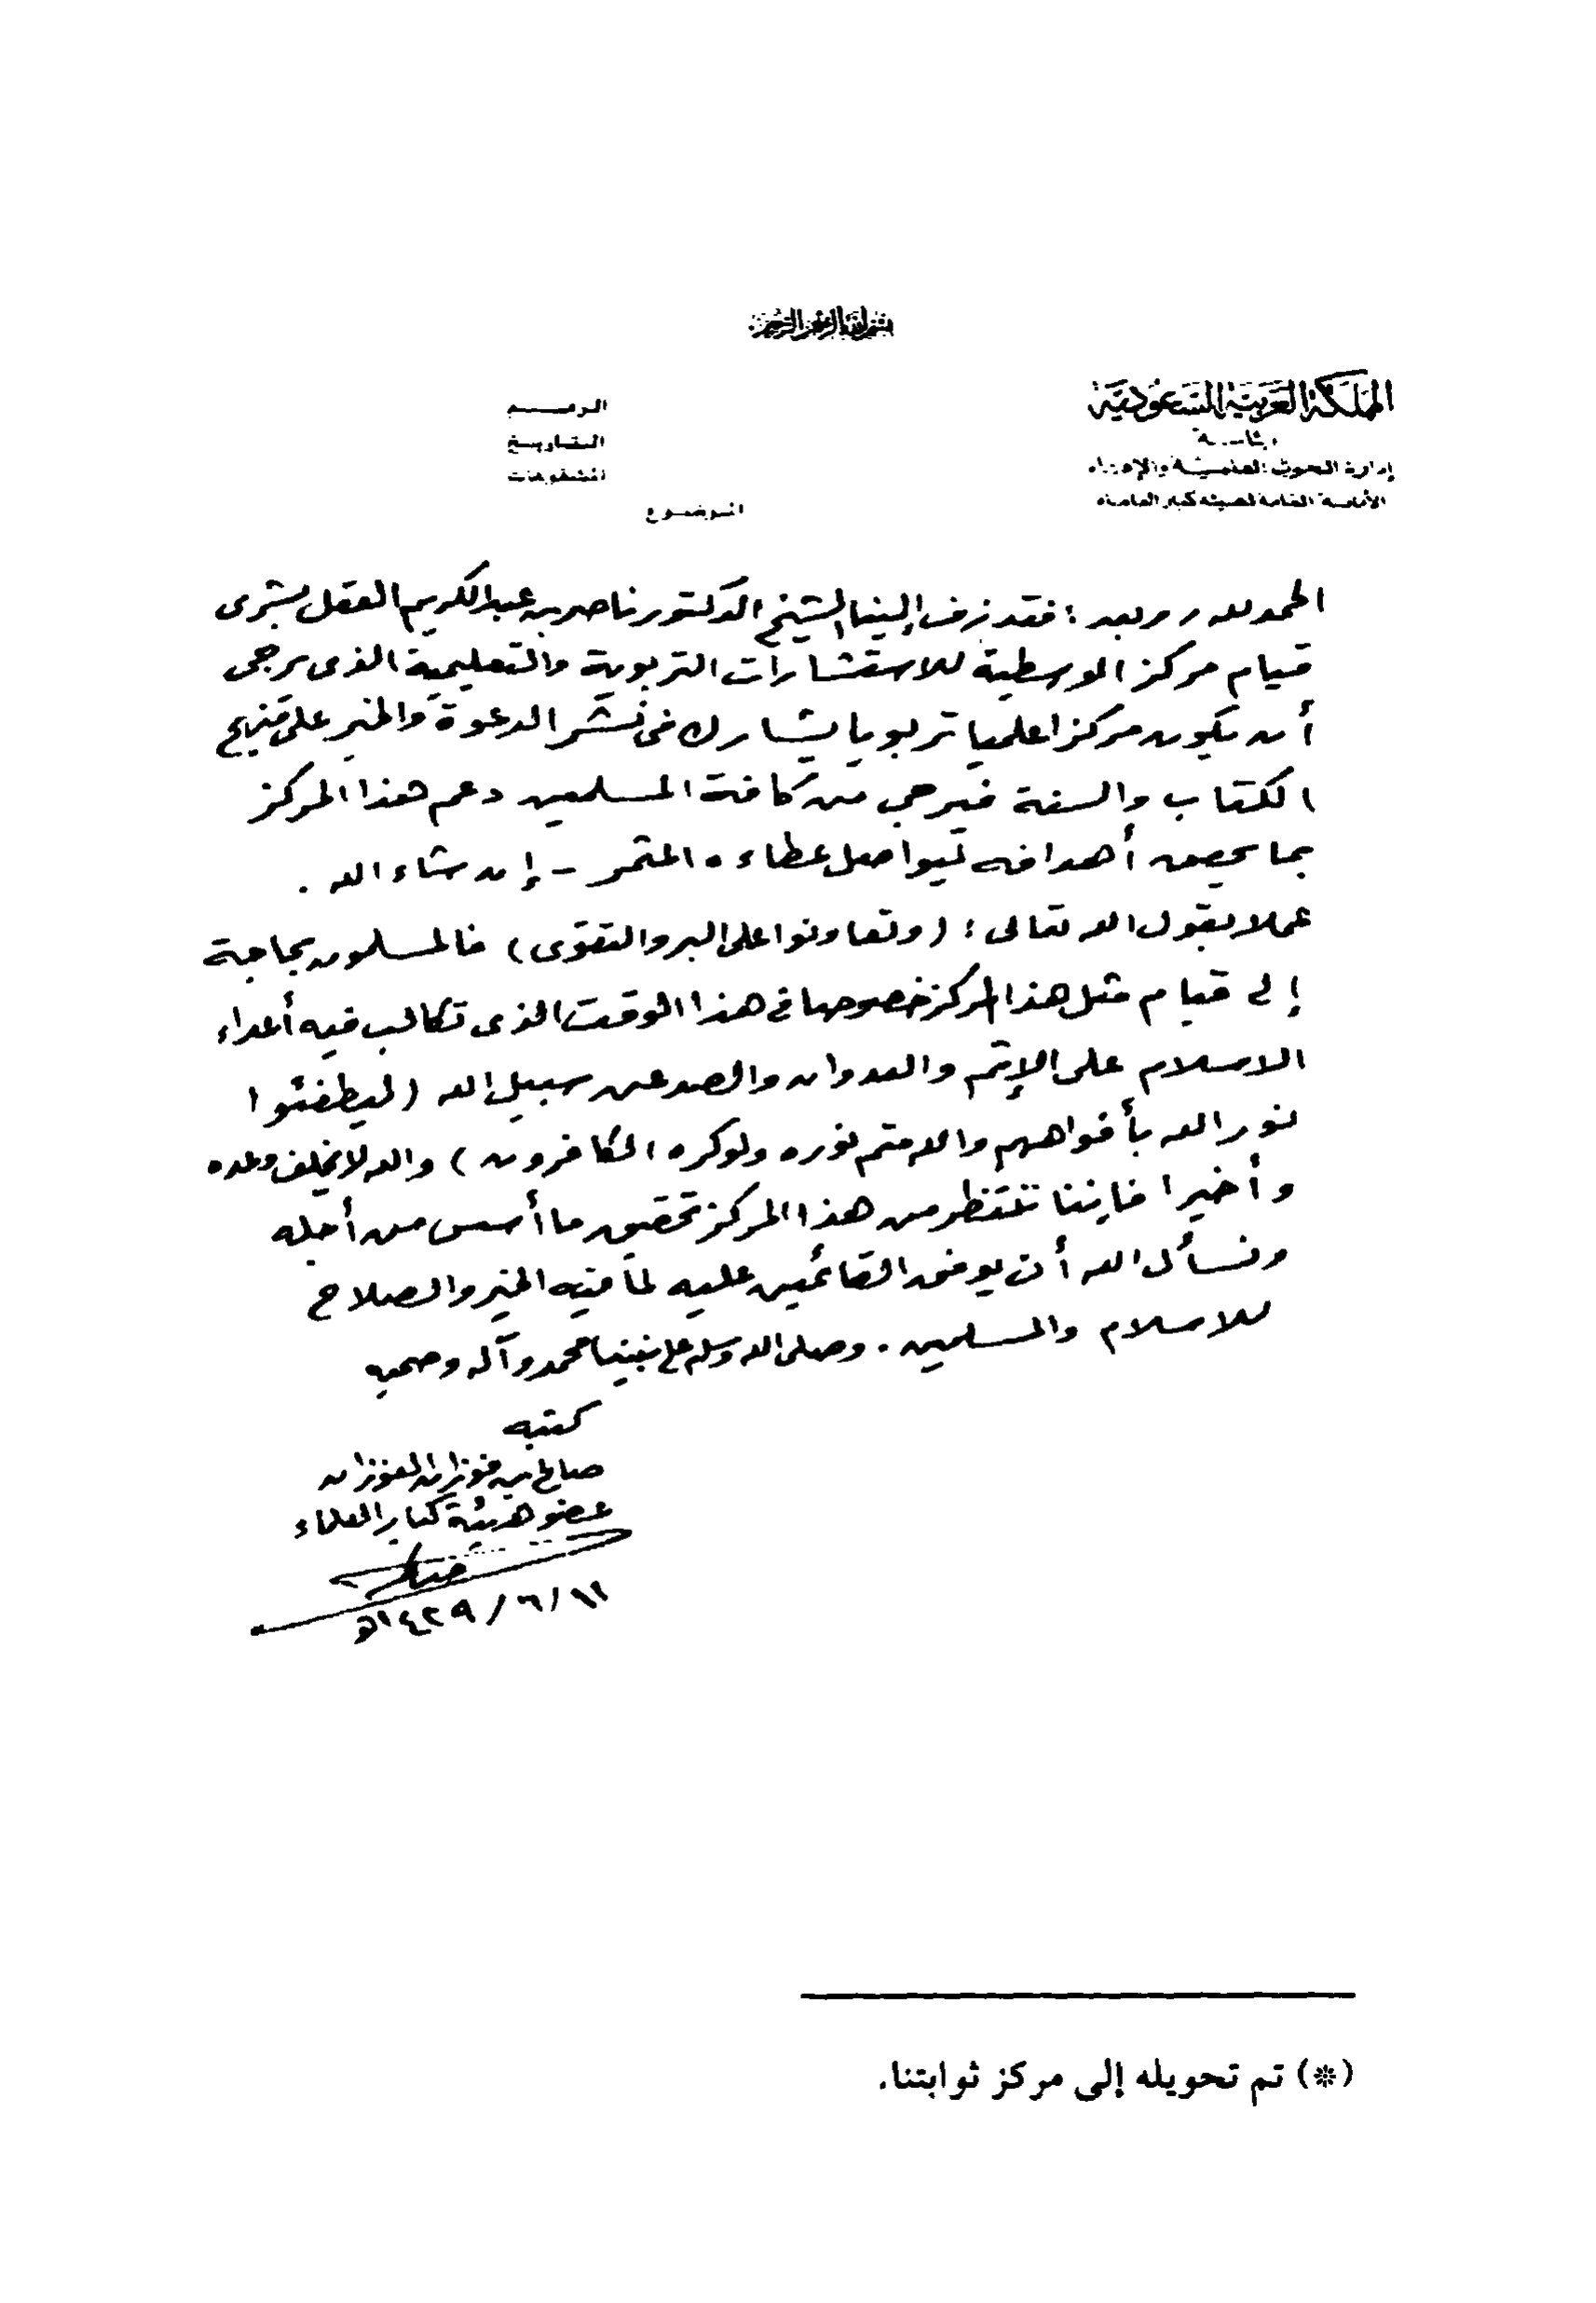 بسم الله الرحمن الرحيم
المملكة العربية السعودية
رئاسة
إدارة البحوث العلمية والإفتاء
الأمانة العامة لهيئة كبار العلماء
الرقم
التاريخ
المشفوعات
الموضوع
الحمد لله وبعد : فقد زف إلينا الشيخ الدكتور ناصر بن عبدالكريم العقل بشرى
قيام مركز الوسطية للاستشارات التربوية والتعليمية الذى يرجى
أن يكون مركزا علميا تربويا يشارك فى نشر الدعوة والخير على منهج
الكتاب والسنة فيرجى من كافة المسلمين دعم هذا المركز
بما يحقق أهدافه ليواصل عطاءه المثمر - إن شاء الله .
عملا بقول الله تعالى : (وتعاونوا على البر والتقوى) فالمسلمون بحاجة
إلى قيام مثل هذا المركز خصوصا في هذا الوقت الذى تكالب فيه أعداء
الاسلام على الإثم والعدوان والصد عن سبيل الله (ليطفئوا
نور الله بأفواههم والله متم نوره ولوكره الكافرون) والله لا يخلف وعده
وأخيرا فإننا ننتظر من هذا المركز تحقيق ما أسس من أجله
ونسأل الله أن يوفق القائمين عليه لما فيه الخير والصلاح
للاسلام والمسلمين . وصلى الله وسلم على نبينا محمد وآله وصحبه
كتبه
صالح بن فوزان الفوزان
عضو هيئة كبار العلماء
١٤٢٩/٦/١١هـ
(*) تم تحويله إلى مركز ثوابتنا.